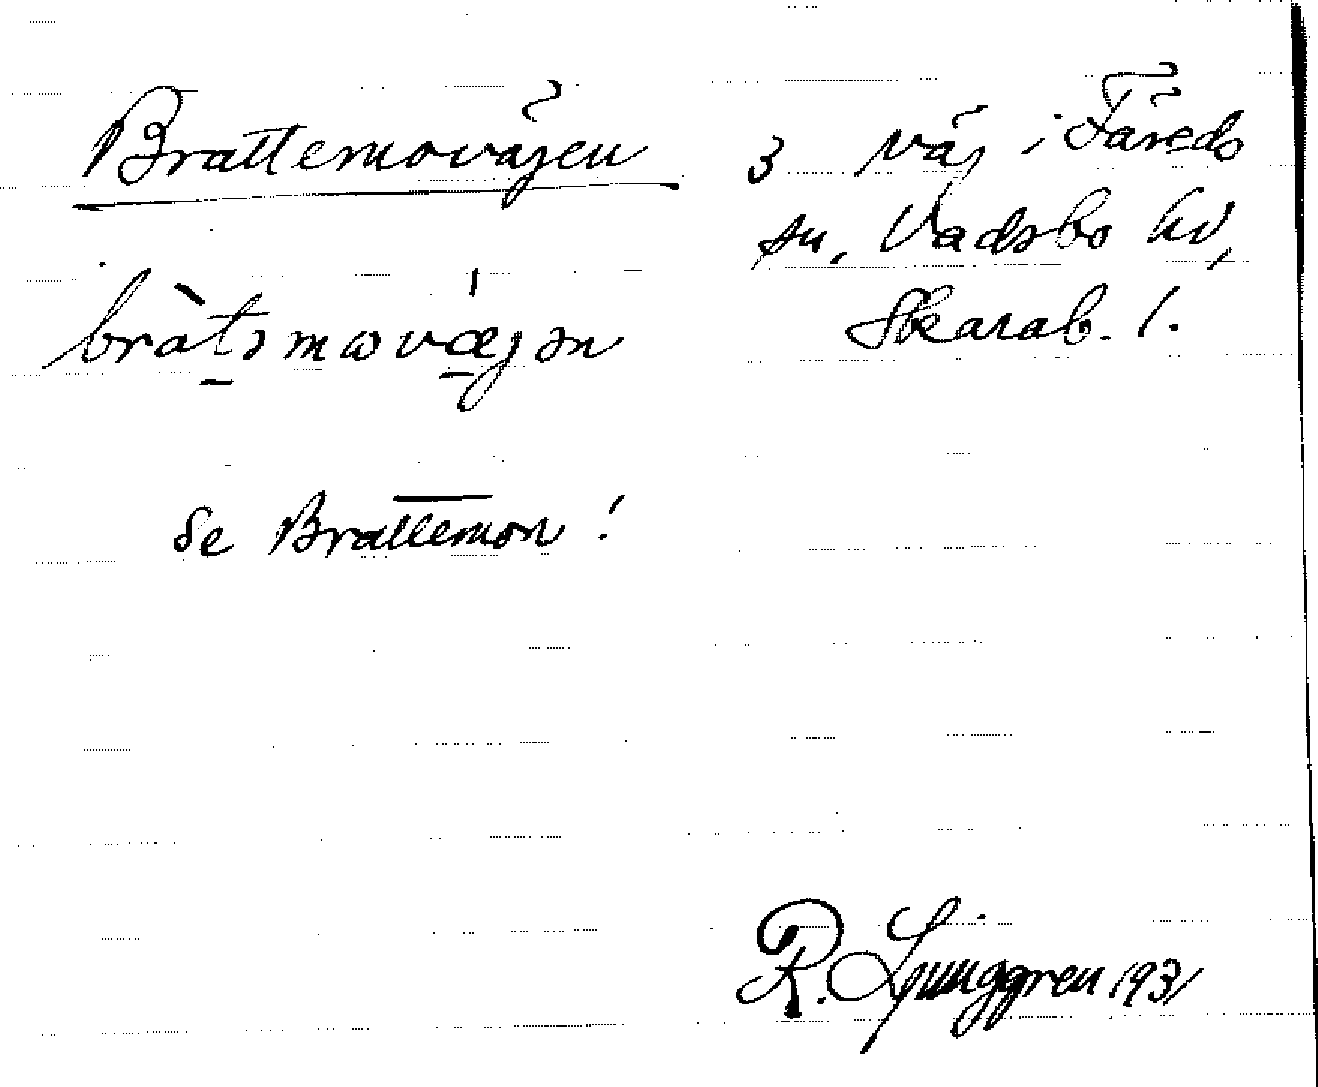 Brattemovägen
3 väg i Täreds
sn, Vadsbo hd,
Skarab. l.
bràtəmωvæ̍gən
Se Brattemon!
R. Ljunggren 1931